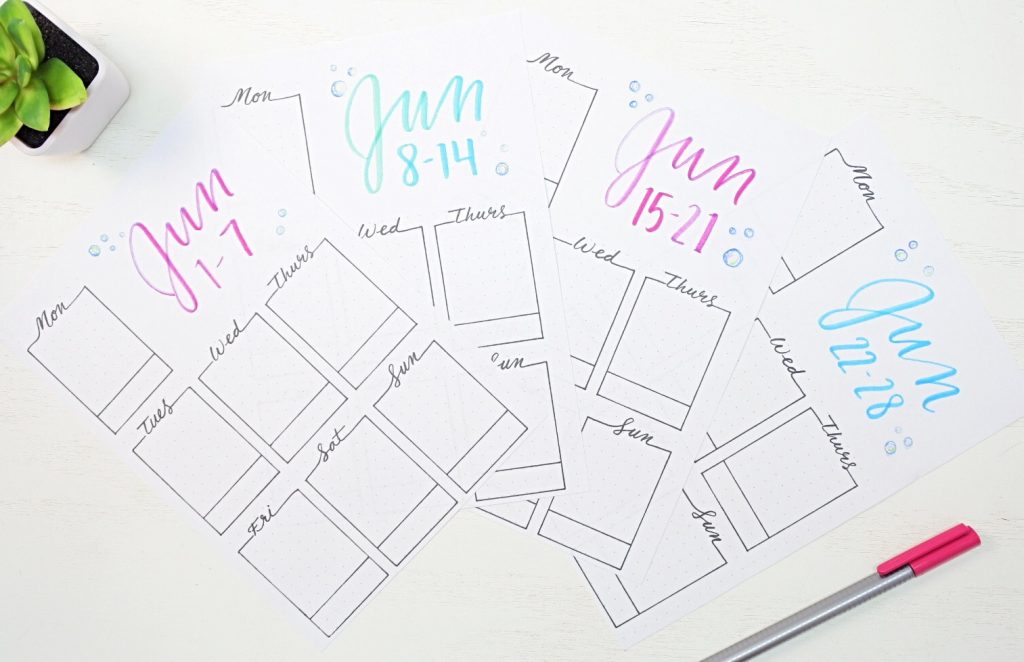 Jun
1-7
Mon
Tues
Wed
Thurs
Fri
Sat
Sun
Mon
Jun
8-14
Wed
Thurs
Mon
Jun
15-21
Wed
Thurs
Sun
Mon
Jun
22-28
Wed
Thurs
Sun